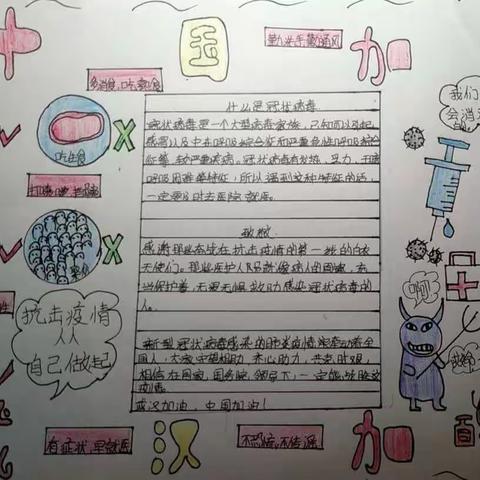 中国加
勤洗手戴通风
多消食.吃熟食
我们
会消
吃生食
打喷嚏捂嘴
聚会
什么是冠状病毒
冠状病毒是一个大型病毒家族，已知可以引起
感冒以及中东呼吸综合征和严重急性呼吸综合
征等较严重疾病。冠状病毒有发热、乏力、干咳
呼吸困难等特征，所以遇到这种特征的话，
一定要及时去医院就医。
致敬
感谢那些奋战在抗击疫情的第一线的白衣
天使们。那些医护人员就像病人的
当保护着，无畏无惧救助感染冠状病毒的
人。
新型冠状病毒感染的肺炎疫情牵动着全
国人，大家守望相助，齐心协力，共克时艰，
相信在国家，国务院领导下，一定能战胜这
疫情。
武汉加油，中国加油！
抗击疫情
人人
自己做起
啊
救命
有症状.早就医
汉
不恐慌.不传谣
加